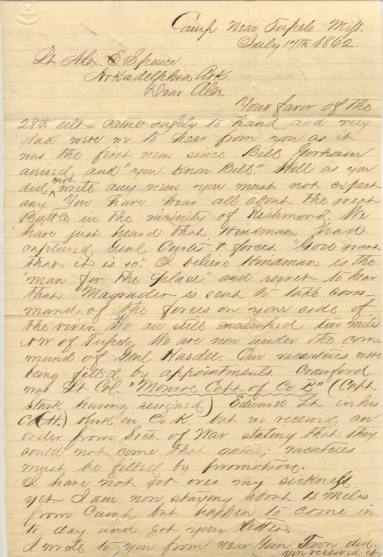 Camp Near Tupelo Miss.
July 17th 1862
Lt Alex. E. Spence
Arkadelphia Ark.
Dear Alex
Your favor of the
28th ult came safely to hand and very
glad were we to hear from you as it
was the first new since Bill Gorham
arrived and "you know Bill" Still as you
did not write any news you must not expect
any You have hear all about the great
Battle in the vicinity of Richmond. We
have just heard that Hindman had
captured Genl Curtis & forces. "God grant
that it is so." I believe Hindman is the
"man for the place" and regret to hear
that Magruder is sent to take com-
mand of the forces on your side of
the river We are still encamped two miles
NW of Tupelo We are now under the com
mand of Genl Hardee. Our vacancies now
being filled by appointments Crawford
now Lt Col. "Monroe Capt of Co B" (Capt
Stark having resigned) Edward Lt in his
in Co K but we received an
order from Sect of War stating that they
could not come that game; vacancies
must be filled by promotion.
I have not got over my sickness
yet I am now staying about 4 miles
from Camp but happen to come in
to day and got your letter.
I wrote to you from near did
you receive it